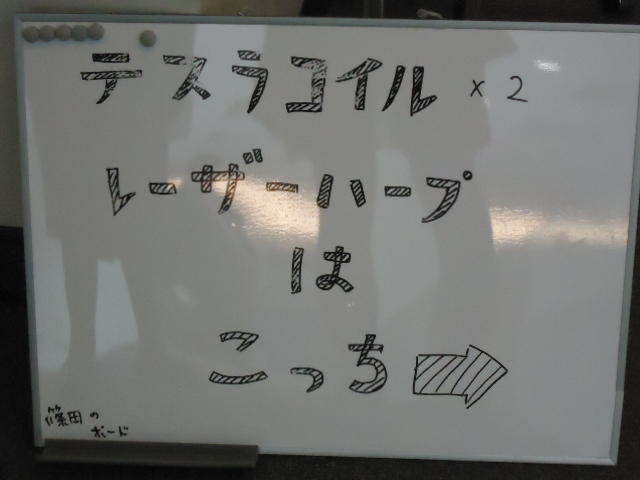 テスラコイル ×2
レーザーハープ
は
こっち
篠田の
ボード